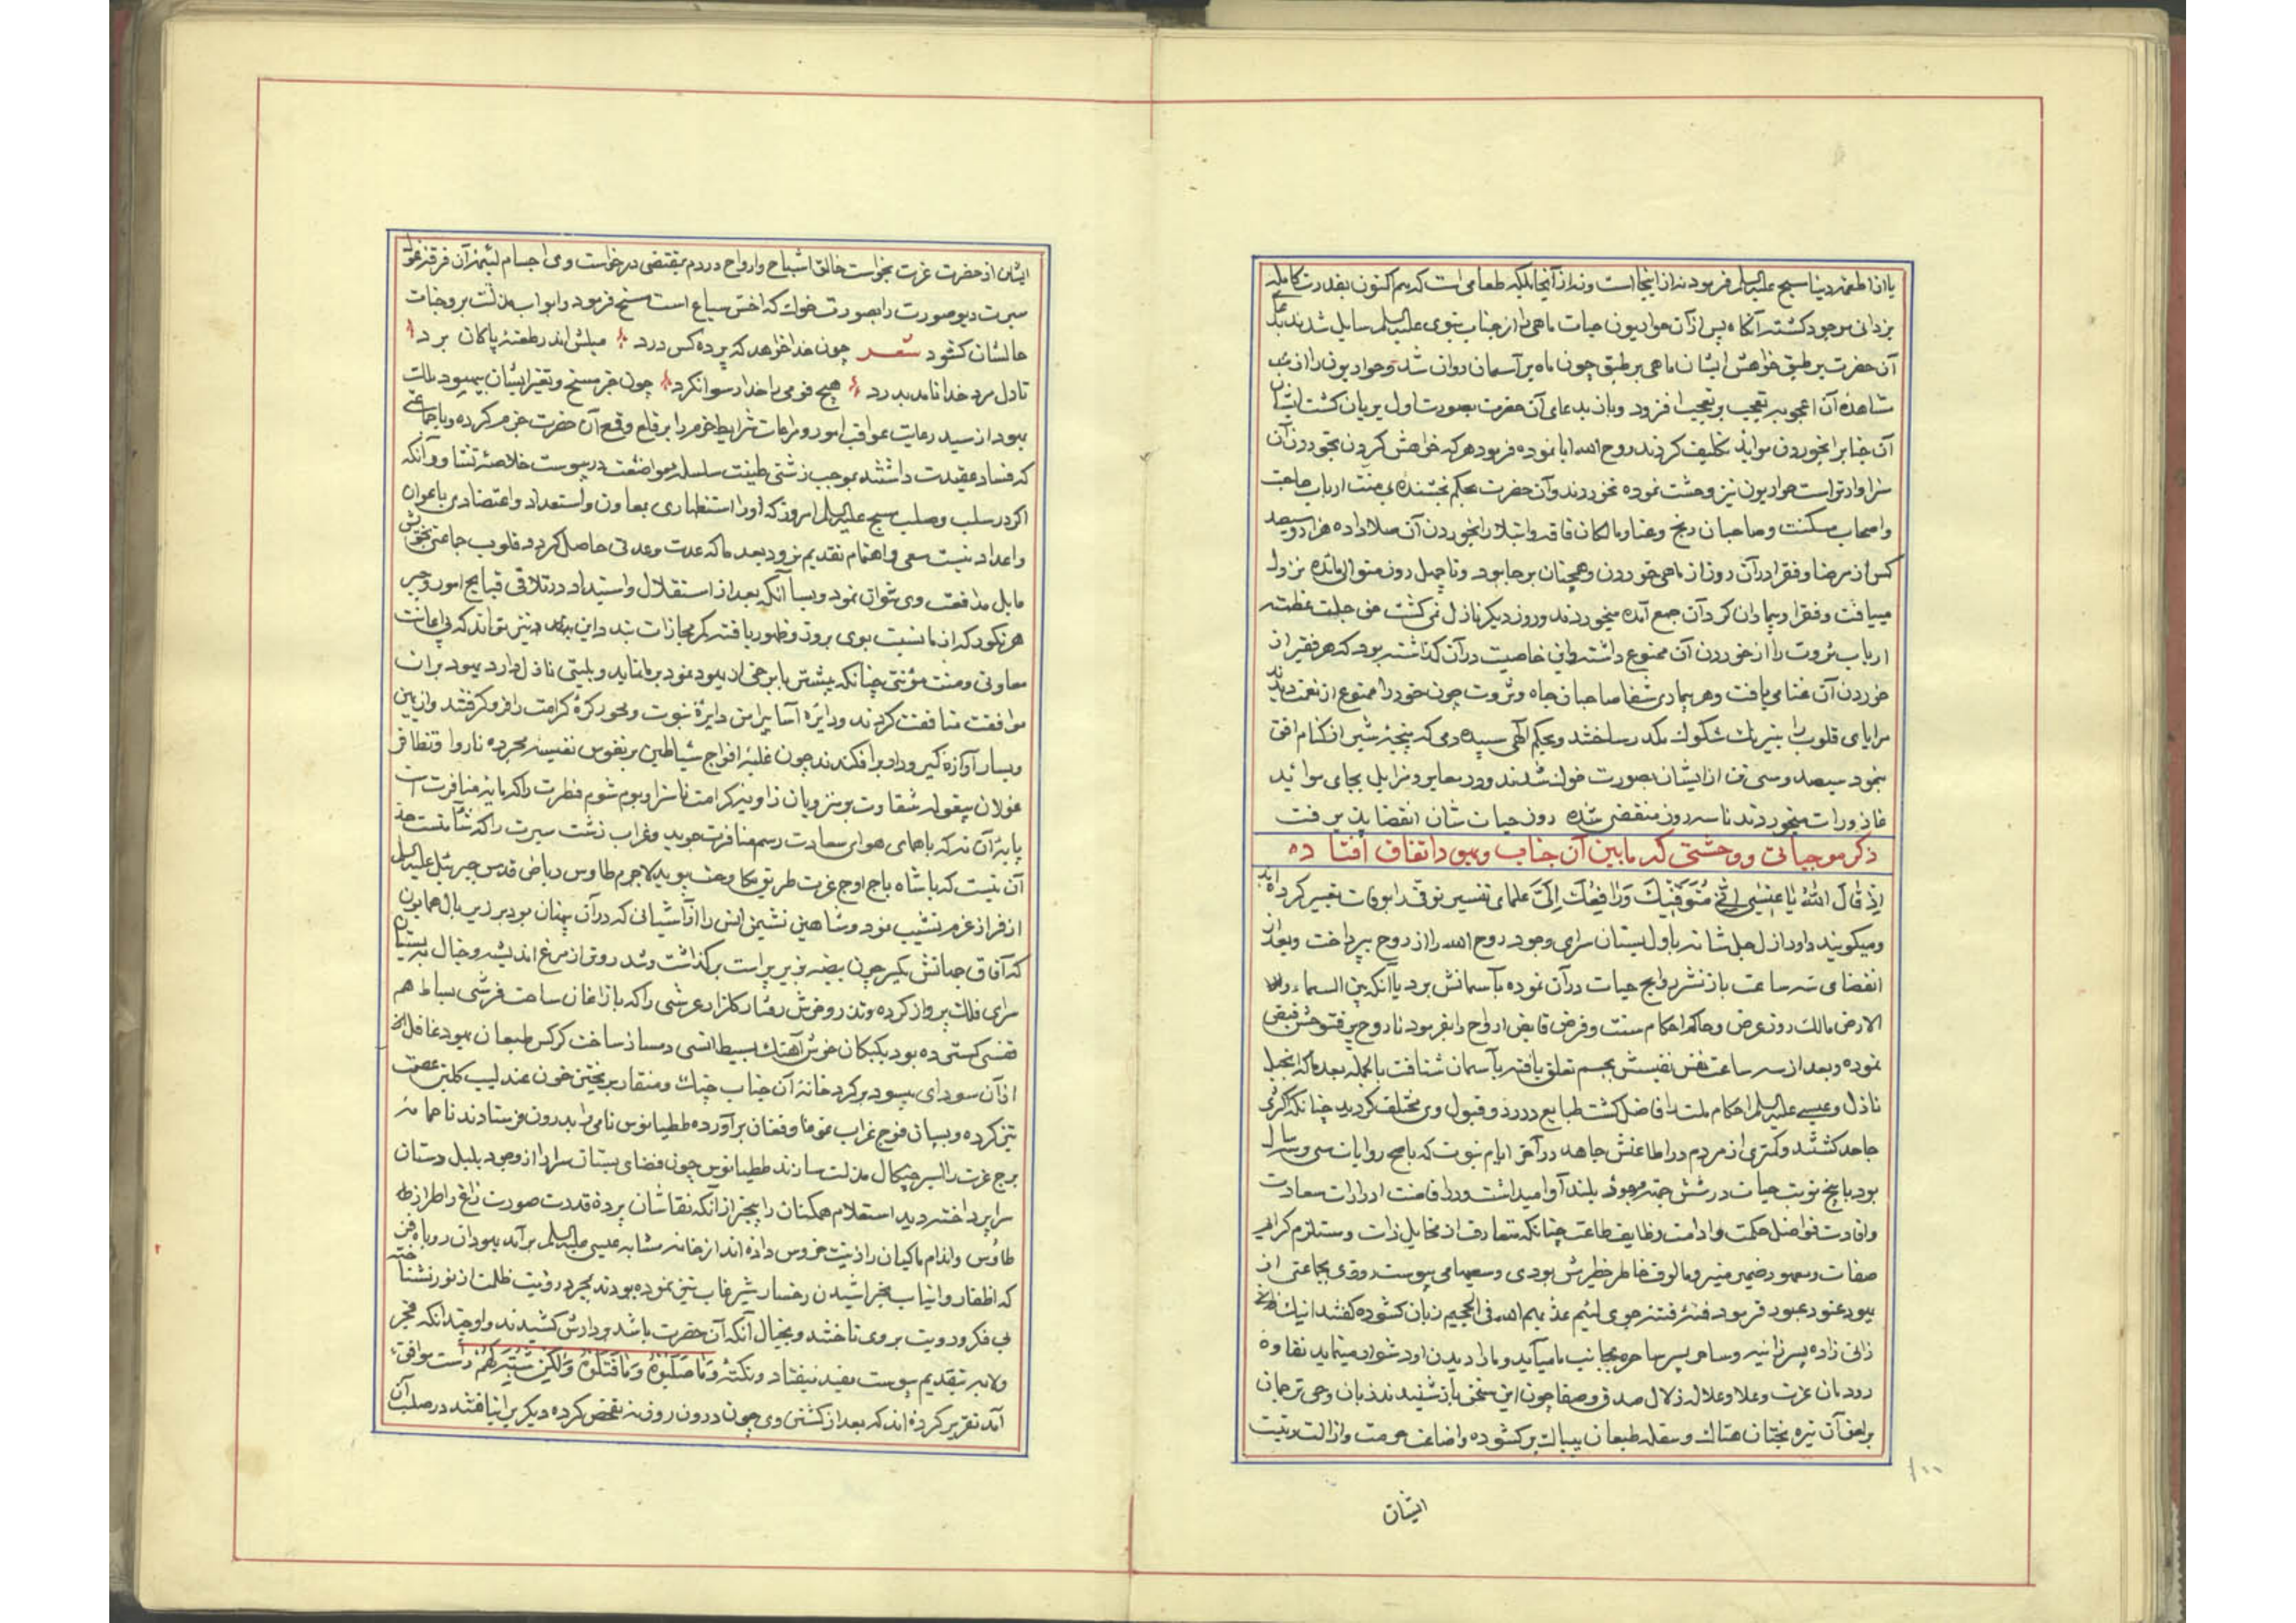 یا از اطعمهٔ دنیا مسیح علیه السلم فرمود نه از اینجا است و نه از آنجا بلکه طعامی است که هم اکنون بقدرت کامله
یزدانی موجود کشته آنکاه پس از آن حواریون حیات ماهی را از جناب نبوی علیه السلم سایل شدند بدعای
آن حضرت بر طبق خواهش ایشان ماهی بر طبق چون ماه بر آسمان روان شد و حواریون را از
مشاهدهٔ آن اعجوبه تعجب بر تعجب افزود و باز بدعای آن حضرت بصورت اول بریان کشت ایشان
آن جناب را بخوردن موائد تکلیف کردند روح الله ابا نموده فرمود هر که خواهش کردن بخوردن آن
سزاوار تو است حواریون نیز وحشت نموده نخوردند و آن حضرت بحکم بخشندهٔ بی منت ارباب حاجت
و اصحاب مسکنت و صاحبان رنج و عنا و مالکان فاقه و ابتلا را بخوردن آن صلا داده هزار و سیصد
کس از مرضا و فقرا در آن روز از ماهی خوردن و همچنان بر جا بود و تا چهل روز متوالی مائده نزول
مییافت و فقرا و بیماران کرد آن جمع آمده میخوردند و روز دیکر نازل نمی کشت حق جلت عظمته
ارباب ثروت را از خوردن آن ممنوع داشته و این خاصیت در آن کذاشته بود که هر فقیر از
خوردن آن غنا می یافت و هر بیماری شفا صاحبان جاه و ثروت چون خود را ممنوع از نعمت دیدند
مرایای قلوب را بنیرنک شکوک مکدر ساختند و بحکم آلهی سپیده دمی که پنجهٔ شیر از کنام افق
بنمود سیصد و سی تن از ایشان بصورت خوک شدند و در معابر و مزابل بجای موائد
قاذورات میخوردند تا سه روز منقضی شده روز حیات شان انقضا پذیرفت
ذکر موجباتی و وحشتی که مابین آن جناب و یهود اتفاق افتاده
اِذ قالَ اللهُ یا عیسی اِنّی مُتَوَفّیکَ وَ رافِعُکَ اِلَیَّ علمای تفسیر توفی را بوفات تعبیر کرده اند
و میکویند داور ازل جل شانه باول بستان سرای وجود روح الله را از روح بپرداخت و بعد از
انقضای سه ساعت باز نشر روایح حیات در آن نموده بآسمانش برد یا آنکه بین السماء و
الارض مالک روز عرض و حاکم احکام سنت و فرض قابض ارواح را بفرمود تا روح پر فتوحش قبض
نموده و بعد از سه ساعت نفس نفیسش بجسم تعلق یافته بآسمان شتافت بالجمله بعد ما که انجیل
نازل و عیسی علیه السلم احکام ملت را فاضل کشت طبایع در رد و قبول وی مختلف کردید چنانکه اکثری
جاحد کشتند و کمتری از مردم در اطاعتش جاهد در آخر ایام نبوت که باصح روایات سی و سه سال
بود با پنج نوبت حیات در شش جهت وجود بلند آوا میداشت و در اقامت ادرارات سعادت
و افادت فواضل حکمت و ادامت وظایف طاعت چنانکه متعارف از مخایل ذات و مستلزم کرایم
صفات و معهود ضمیر منیر و مالوف خاطر خطیرش بودی و سعیها می پیوست روزی بجماعتی از
یهود عنود عبور فرمود فتنهٔ فتنه جوی لئیم عذبهم الله فی الجحیم زبان کشوده کفتند اینک
زانی زاده پسر زانیه و ساحر پسر ساحره بجانب ما میآید و ما را دیدن او دشوار مینماید نقاوهٔ
دودمان عزت و علا و علالهٔ زلال صدق و صفا چون این سخن باز شنیدند زبان وحی ترجمان
بر لعن آن تیره بختان هتاک و سفله طبعان بیباک بر کشوده و اضاعت حرمت و ازالت زینت
۱۰۰
ایشان
ایشان از حضرت عزت بخواست خالق اشباح و ارواح در دم بمقتضی درخواست وی اجسام لئیمهٔ آن فرقهٔ غول
سیرت دیو صورت را بصورت خوک که اخس سباع است مسخ فرمود و ابواب مذلت بر وجنات
حالشان کشود شعر چون خدا خواهد که پرده کس درد میلش اندر طعنهٔ پاکان برد
تا دل مرد خدا نامد بدرد هیچ قومی را خدا رسوا نکرد چون خبر مسخ و تغیر ایشان بیهود ملت
یهود از سید رعایت عواقب امور و مراعات شرایط حزم را بر قلع و قمع آن حضرت جزم کرده و با جماعتی
که فساد عقیدت داشتند بموجب زشتی طینت سلسلهٔ مواضعت در پیوست خلاصهٔ تشاور آنکه
اکر در سلب و صلب مسیح علیه السلم امروز که او را استظهاری بمعاون و استعداد و اعتضادی باعوان
و اعداد نیست سعی و اهتمام بتقدیم نرود بعد ما که عدت و عدتی حاصل کرد و قلوب جماعتی بخویش
مایل مدافعت وی نتوان نمود و بسا آنکه بعد از استقلال و استبداد در تلافی قبایح امور و جبر
هر نکوهید که از ما نسبت بوی بروز و ظهور یافته کمر مجازات بندد این نیز تواند که بی اعانت
معاونی و منت مؤنتی چنانکه پیشتر با برخی از یهود نمود بر ما نماید و بلیتی نازل دارد یهود بر ان
موافقت متافقت کردند و دایره آسا پیرامن دایرهٔ نبوت و محور کرهٔ کرامت را فرو کرفتند و از یمین
و یسار آوازه کیر و دار بر افکندند چون غلبهٔ افواج شیاطین بر نفوس نفیسهٔ مجرده ناروا و تظافر
غولان بیغوله شقاوت بر منزویان زاویه کرامت ناسزا و بوم شوم فطرت را که پایهٔ منافرت است
پایهٔ آن نه که با همای هوای سعادت رسم منافرت جوید و غراب زشت سیرت را که شآمتست حد
آن نیست که با شاه باج اوج عزت طریق مکاوحت پوید لاجرم طاوس ریاض قدس جبرئیل علیه السلم
از فراز عزم نشیب نمود و شاهین نشیمن انس را از آشیانی که در آن پنهان بود بر زیر بال همایون
که آفاق جهانش یکسر چون بیضه بزیر پر است بر کذاشت و تند رو تر از مرغ اندیشه و خیال
سرای فلک پرواز کرده و تذرو خوش رفتار کلزار عرشی را که با زاغان ساحت فرشی بساط هم
نفسی کستی ده بود بکبکان خوش آهنک بسیط انسی دمساز ساخت کرکس طبعان یهود غافل
از آن سودای بیسود بر کرد خانهٔ آن جناب چنک و منقار بریختن خون عندلیب کلبن عصمت
تیز کرده و بسان فوج غراب غوغا و فغان بر آورده ططیانوس نامی را بدرون فرستادند تا حمامهٔ
برج عزت را اسیر چنکال مذلت سازند ططیانوس چون فضای بستان سرا را از وجود بلبل دستان
سرا پرداخته دید استعلام همکنان را بیخبر از آنکه نقاشان پردهٔ قدرت صورت زاغ را طراز
طاوس و اندام ماکیان را زینت خروس داده اند از خانه مشابه عیسی علیه السلم بر آمد یهودان روباه فن
که اظفار و انیاب بخراشیدن رخسار شیر غاب تیز نموده بودند بمجرد رؤیت ظلمت از نور نشناخته
بی فکر و رویت بر وی تاختند و بخیال آنکه آن حضرت باشد بر دارش کشیدند و او چندانکه فجر
ولابه بتقدیم پیوست مفید نیفتاد و نکتهٔ وَ ما صَلَبوهُ وَ ما قَتَلوهُ وَ لکِن شُبِّهَ لَهُم راست موافق
آمد تقریر کرده اند که بعد از کشتن وی چون درون روزنه تفحص کرده دیکریرا نیافتند در صلب آن